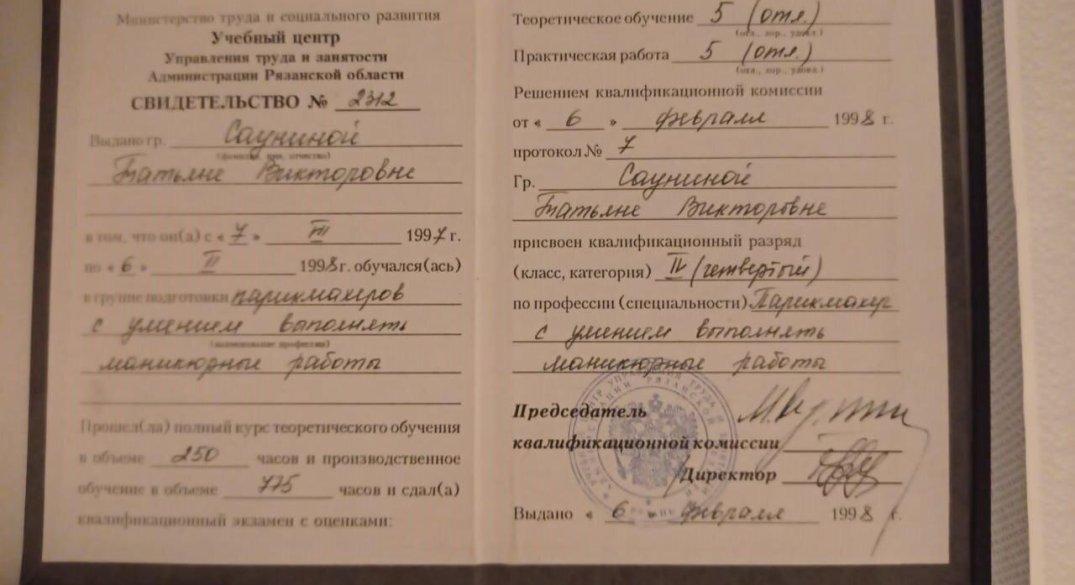 Министерство труда и социального развития
Учебный центр
Управления труда и занятости
Администрации Рязанской области
СВИДЕТЕЛЬСТВО № 2312
Выдано гр. Сауниной
(фамилия, имя, отчество)
Татьяне Викторовне
в том, что он(а) с « 7 » III 1997 г.
по « 6 » II 1998 г. обучался(ась)
в группе подготовки парикмахеров
с умением выполнять
(наименование профессии)
маникюрные работы
Прошел(ла) полный курс теоретического обучения
в объеме 250 часов и производственное
обучение в объеме 775 часов и сдал(а)
квалификационный экзамен с оценками:
Теоретическое обучение 5 (отл.)
(отл., хор., удовл.)
Практическая работа 5 (отл.)
(отл., хор., удовл.)
Решением квалификационной комиссии
от « 6 » февраля 1998 г.
протокол № 7
Гр. Сауниной
Татьяне Викторовне
присвоен квалификационный разряд
(класс, категория) IV (четвертый)
по профессии (специальности) Парикмахер
с умением выполнять
маникюрные работы
Председатель
квалификационной комиссии
Директор
Выдано « 6 » февраля 1998 г.